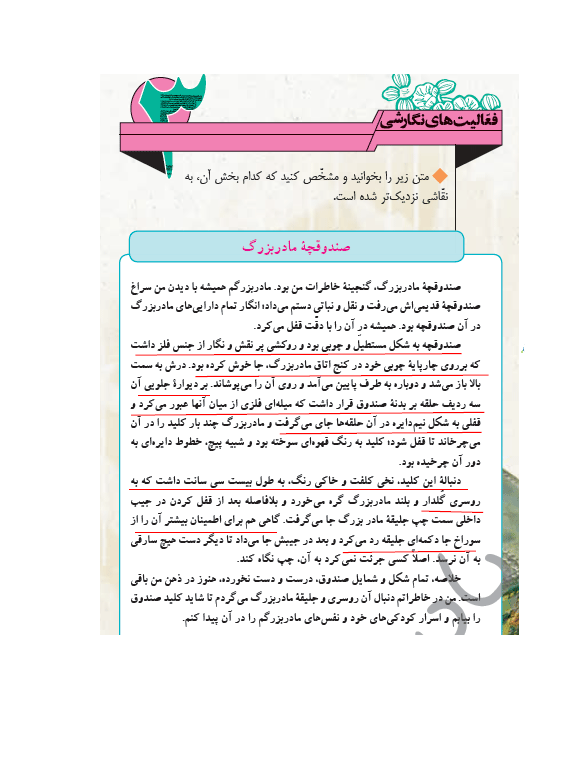 فعّالیت‌های نگارشی
متن زیر را بخوانید و مشخّص کنید که کدام بخش آن، به
نقّاشی نزدیک‌تر شده است.
صندوقچهٔ مادربزرگ
صندوقچهٔ مادربزرگ، گنجینهٔ خاطرات من بود. مادربزرگم همیشه با دیدن من سراغ
صندوقچهٔ قدیمی‌اش می‌رفت و نقل و نباتی دستم می‌داد؛ انگار تمام دارایی‌های مادربزرگ
در آن صندوقچه بود. همیشه درِ آن را با دقّت قفل می‌کرد.
صندوقچه به شکل مستطیل و چوبی بود و روکشی پر نقش و نگار از جنس فلز داشت
که برروی چارپایهٔ چوبی خود در کنج اتاق مادربزرگ، جا خوش کرده بود. درش به سمت
بالا باز می‌شد و دوباره به طرف پایین می‌آمد و روی آن را می‌پوشاند. بر دیوارهٔ جلویی آن
سه ردیف حلقه بر بدنهٔ صندوق قرار داشت که میله‌ای فلزی از میان آنها عبور می‌کرد و
قفلی به شکل نیم‌دایره در آن حلقه‌ها جای می‌گرفت و مادربزرگ چند بار کلید را در آن
می‌چرخاند تا قفل شود؛ کلید به رنگ قهوه‌ای سوخته بود و شبیه پیچ، خطوط دایره‌ای به
دور آن چرخیده بود.
دنبالهٔ این کلید، نخی کلفت و خاکی رنگ، به طول بیست سی سانت داشت که به
روسری گلدار و بلند مادربزرگ گره می‌خورد و بلافاصله بعد از قفل کردن در جیب
داخلی سمت چپ جلیقهٔ مادر بزرگ جا می‌گرفت. گاهی هم برای اطمینان بیشتر آن را از
سوراخ جا دکمه‌ای جلیقه رد می‌کرد و بعد در جیبش جا می‌داد تا دیگر دست هیچ سارقی
به آن نرسد. اصلاً کسی جرئت نمی‌کرد به آن، چپ نگاه کند.
خلاصه، تمام شکل و شمایل صندوق، درست و دست نخورده، هنوز در ذهن من باقی
است. من در خاطراتم دنبال آن روسری و جلیقهٔ مادربزرگ می‌گردم تا شاید کلید صندوق
را بیابم و اسرار کودکی‌های خود و نفس‌های مادربزرگم را در آن پیدا کنم.